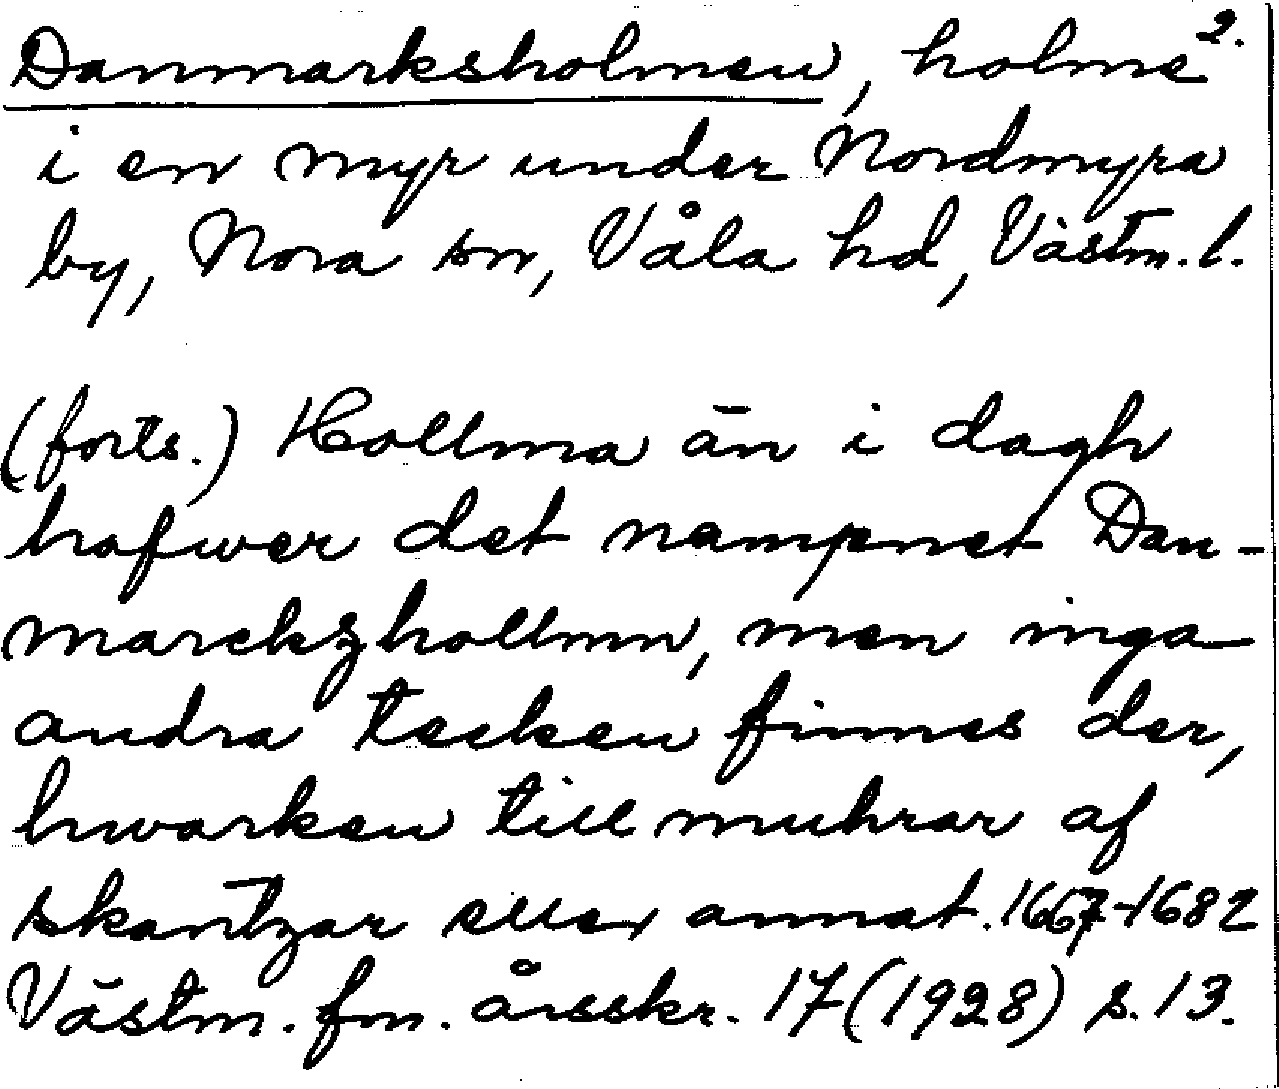 Danmarksholmen, holme 2.
i en myr under Nordmyra
by, Nora sn, Våla hd, Västm. l.
(forts.) Hollma än i dagh
hafwer det nampnet Dan-
marckzhollmn, men inga
andra tecken finnes der,
hwarken till muhrar af
skantzar eller annat. 1667-1682
Västm. fm. årsskr. 17 (1928) s. 13.